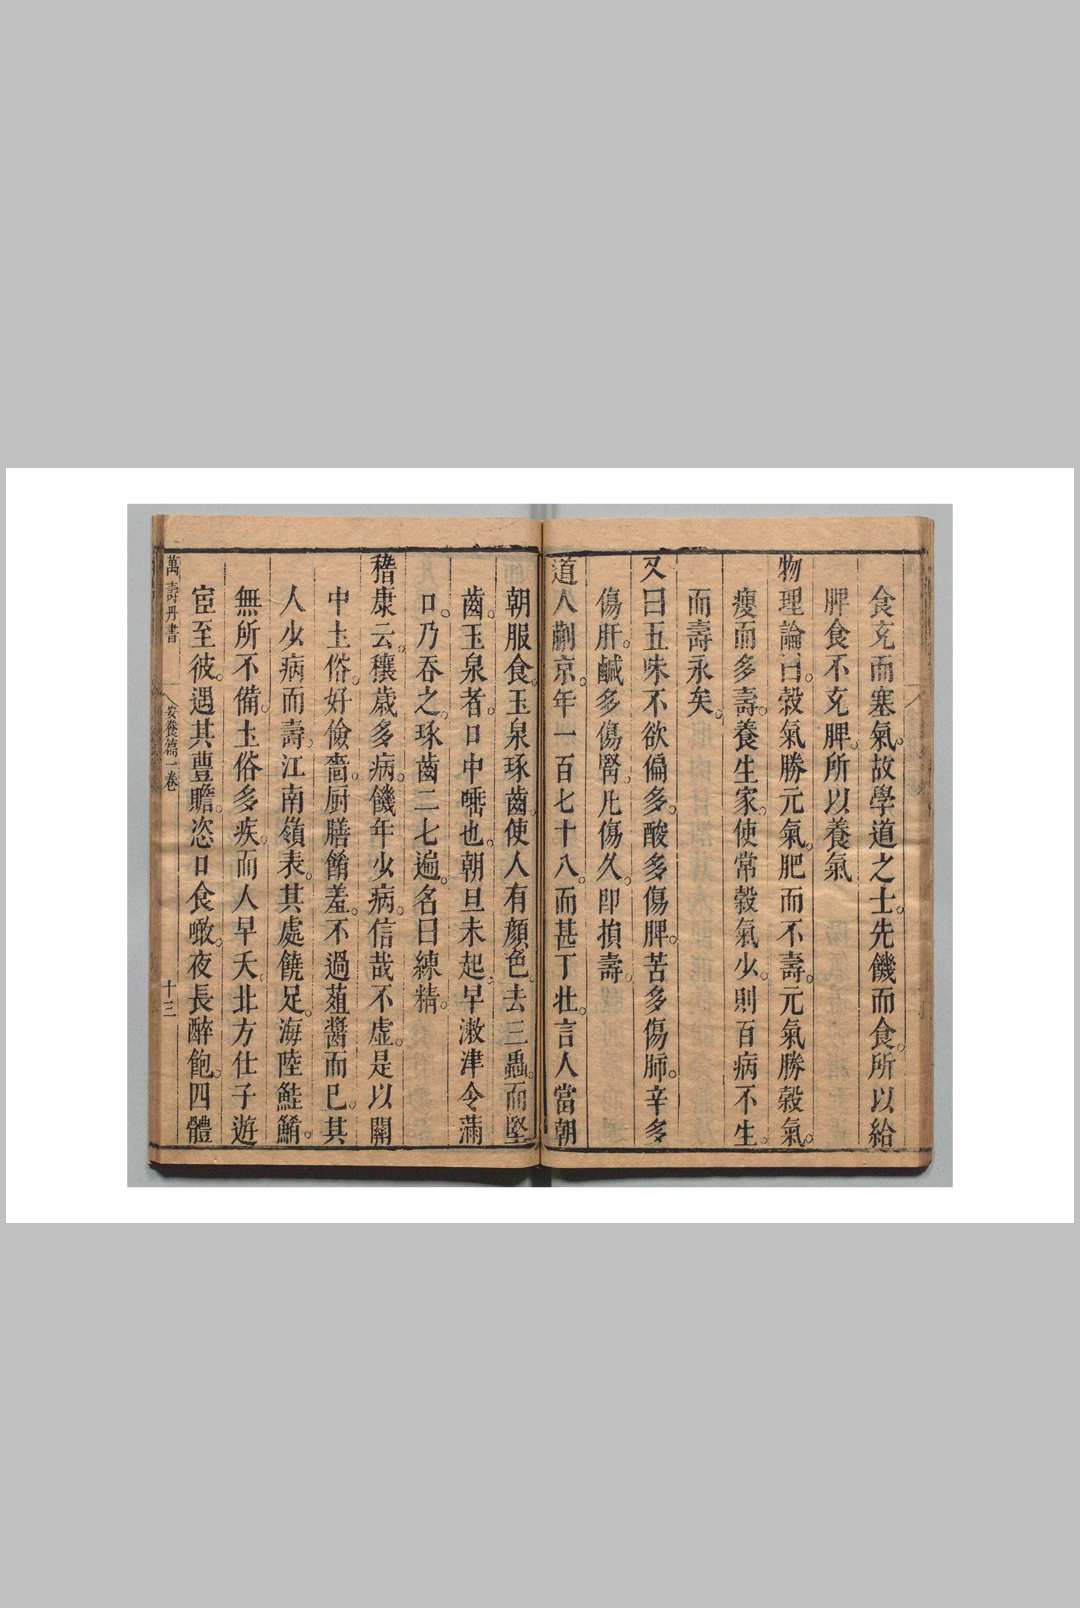 食充而塞氣。故學道之士。先饑而食。所以給
脾食不充脾。所以養氣
物理論曰。穀氣勝元氣。肥而不壽。元氣勝穀氣。
瘦而多壽。養生家。使常穀氣少。則百病不生。
而壽永矣。
又曰五味不欲偏多。酸多傷脾。苦多傷肺。辛多
傷肝。鹹多傷腎。凡傷久。卽損壽。
道人蒯京。年一百七十八。而甚丁壯。言人當朝
朝服食玉泉琢齒。使人有顏色。去三蟲。而堅
齒。玉泉者。口中唾也。朝旦未起。早漱津令滿
口。乃吞之。琢齒二七遍。名曰練精。
稽康云。穰歲多病。饑年少病。信哉不虛。是以關
中土俗。好儉嗇。厨膳餚羞。不過菹醬而已。其
人少病而壽。江南嶺表。其處饒足。海陸鮭餚。
無所不備。土俗多疾。而人早夭。北方仕子遊
宦至彼。遇其豐贍。恣口食噉。夜長醉飽。四體
萬壽丹書
安養篇一卷
十三